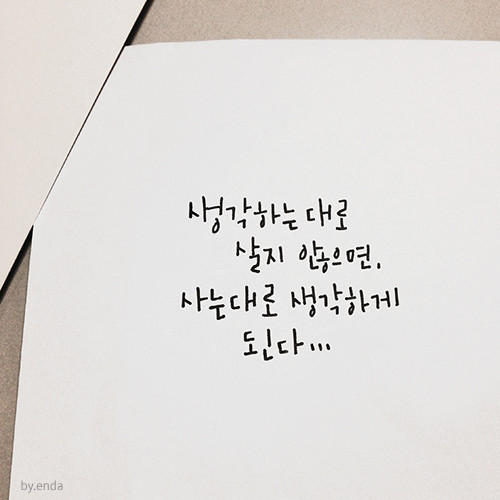 생각하는 대로
살지 않으면,
사는대로 생각하게
된다...
by.enda